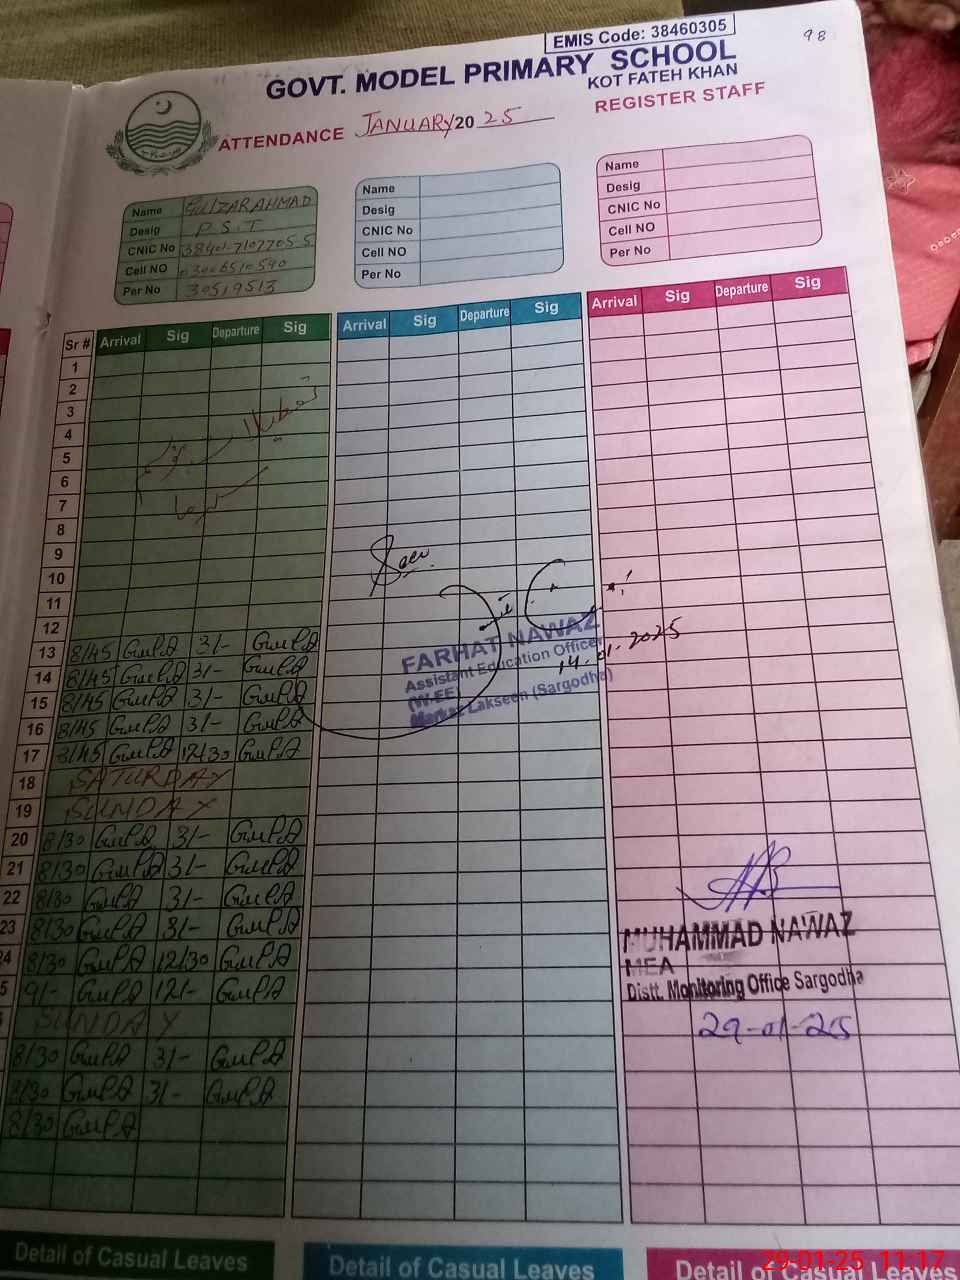 EMIS Code: 38460305
98
GOVT. MODEL PRIMARY SCHOOL
KOT FATEH KHAN
ATTENDANCE JANUARY 2025
REGISTER STAFF
Name GULZAR AHMAD
Desig P.S.T
CNIC No
Cell NO
Per No 30519513
Name
Desig
CNIC No
Cell NO
Per No
Name
Desig
CNIC No
Cell NO
Per No
Sr # Arrival Sig Departure Sig Arrival Sig Departure Sig Arrival Sig Departure Sig
1
2
3
4
5
6
7
8
9
10
11
12
13 8/45 3/-
14 8/45 3/-
15 8/45 3/-
16 8/45 3/-
17 8/45 12/30
18 SATURDAY
19 SUNDAY
20 8/30 3/-
21 8/30 3/-
22 8/30 3/-
23 8/30 3/-
4 8/30 12/30
5 9/- 12/-
SUNDAY
8/30 3/-
8/30 3/-
8/30
تعطیلات موسم
سرما
FARHAT NAWAZ
Assistant Education Officer
(W-EE)
Markaz Lakseen (Sargodha)
14.01.2025
MUHAMMAD NAWAZ
MEA
Distt. Monitoring Office Sargodha
29-01-25
Detail of Casual Leaves
Detail of Casual Leaves
Detail of Casual Leaves
29-01-25 11:17